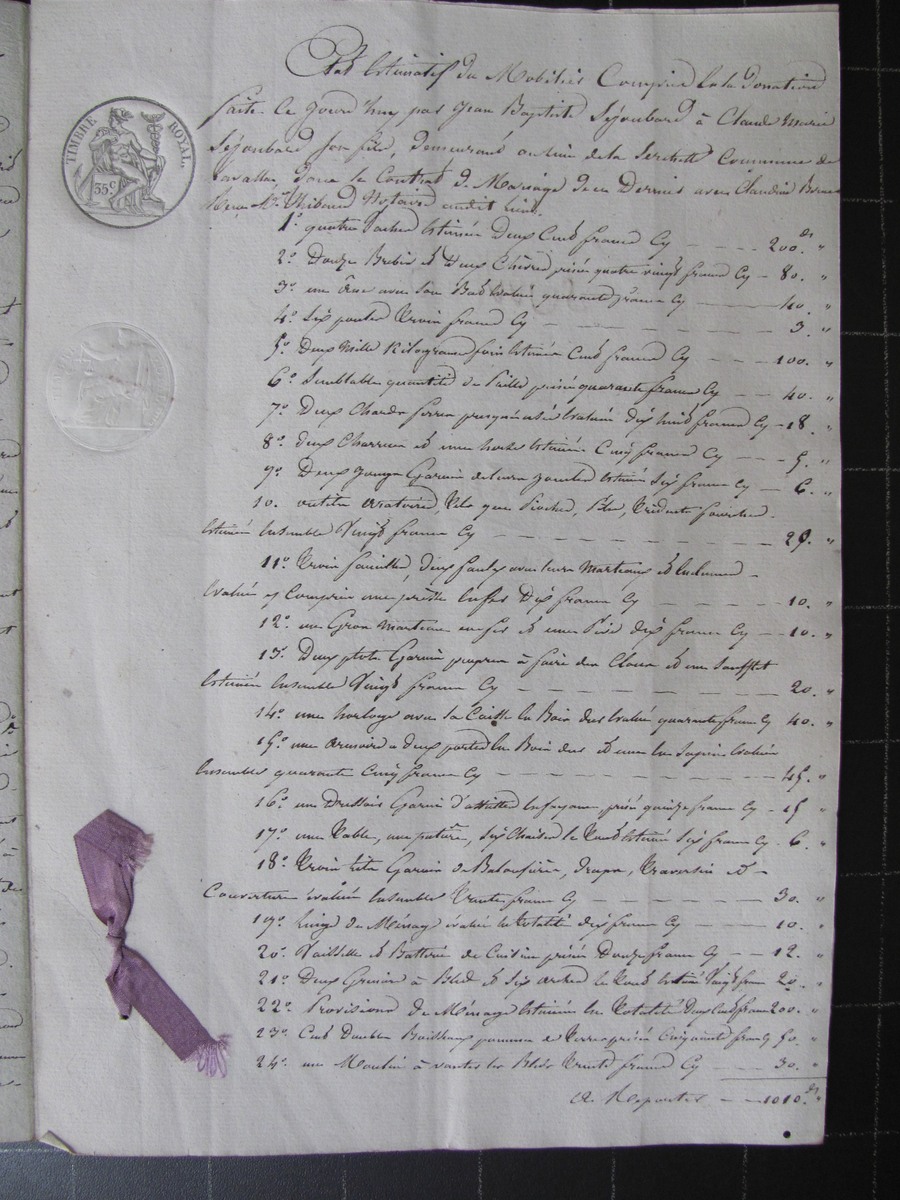 Etat Estimatif du Mobilier Compris En la Donation
faite Ce jourd'hui par Jean Baptiste Séjoubard à Claude Marie
Séjoubard Son fils, demeurant au lieu de la Commune de
dans le Contrat de Mariage de ce Dernier avec Claudine
Reçu Me Thibaud Notaire audit lieu.
TIMBRE ROYAL.
35c
1o quatre Vaches Estimées Deux Cents francs Cy 200. fs "
2o Douze Brebis et Deux Chèvres prisées quatre vingt francs Cy 80. "
3o un âne avec son Bât Evalué quarante francs Cy 40. "
4o Six poules trois francs Cy 3 "
5o Deux Mille Kilogrames foin Estimés Cent francs Cy 100. "
6o Semblable quantité de Paille prisée quarante francs Cy 40. "
7o Deux Chards ferrés presqu'usés Evalués dix huit francs Cy 18. "
8o deux Charrues et une herse Estimées Cinq francs Cy 5. "
9o Deux Jougs Garnis de leurs Estimés Six francs Cy 6. "
10. outils aratoires tels que Pioches, tridents fourches
Estimés Ensemble Vingt francs Cy 20. "
11o trois faucilles, deux faulx avec leurs Marteaux et Enclumes
Evalués y Compris une En fer Dix francs Cy 10. "
12o un Gros Marteau en fer et une dix francs Cy 10. "
13o Deux Garnis propres à faire des Cloux et un Soufflet
Estimés Ensemble Vingt francs Cy 20. "
14o une horloge avec sa Caisse En Bois dur Evalué quarante francs Cy 40. "
15o une armoire à deux portes En Bois dur et une En Sapin Evaluées
Ensemble quarante Cinq francs Cy 45. "
16o un Dressoir Garni d'assiettes En fayence, prisé quinze francs Cy 15 "
17o une Table, une Six Chaises le tout Estimé Six francs Cy 6. "
18o Trois lits Garnis de Draps, traversins et
Couvertures évalués Ensemble trente francs Cy 30. "
19o Linge de Ménage évalué En totalité dix francs Cy 10. "
20o Vaisselle et Batterie de Cuisine prisées Douze francs Cy 12. "
21o Deux Greniers à Bled et Six arches le tout Estimé Vingt francs 20. "
22o Provisions de Ménage Estimées En totalité Deux Cents francs 200. "
23o Cent Doubles Boisseaux pommes de Terres prisés Cinquante francs Cy 50. "
24o un Moulin à vanter les Bleds trente francs Cy 30. "
A Reporter 1010. fs "